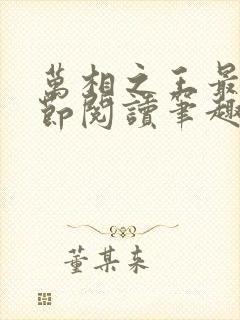 萬相之王最
節閱讀筆趣
董某来